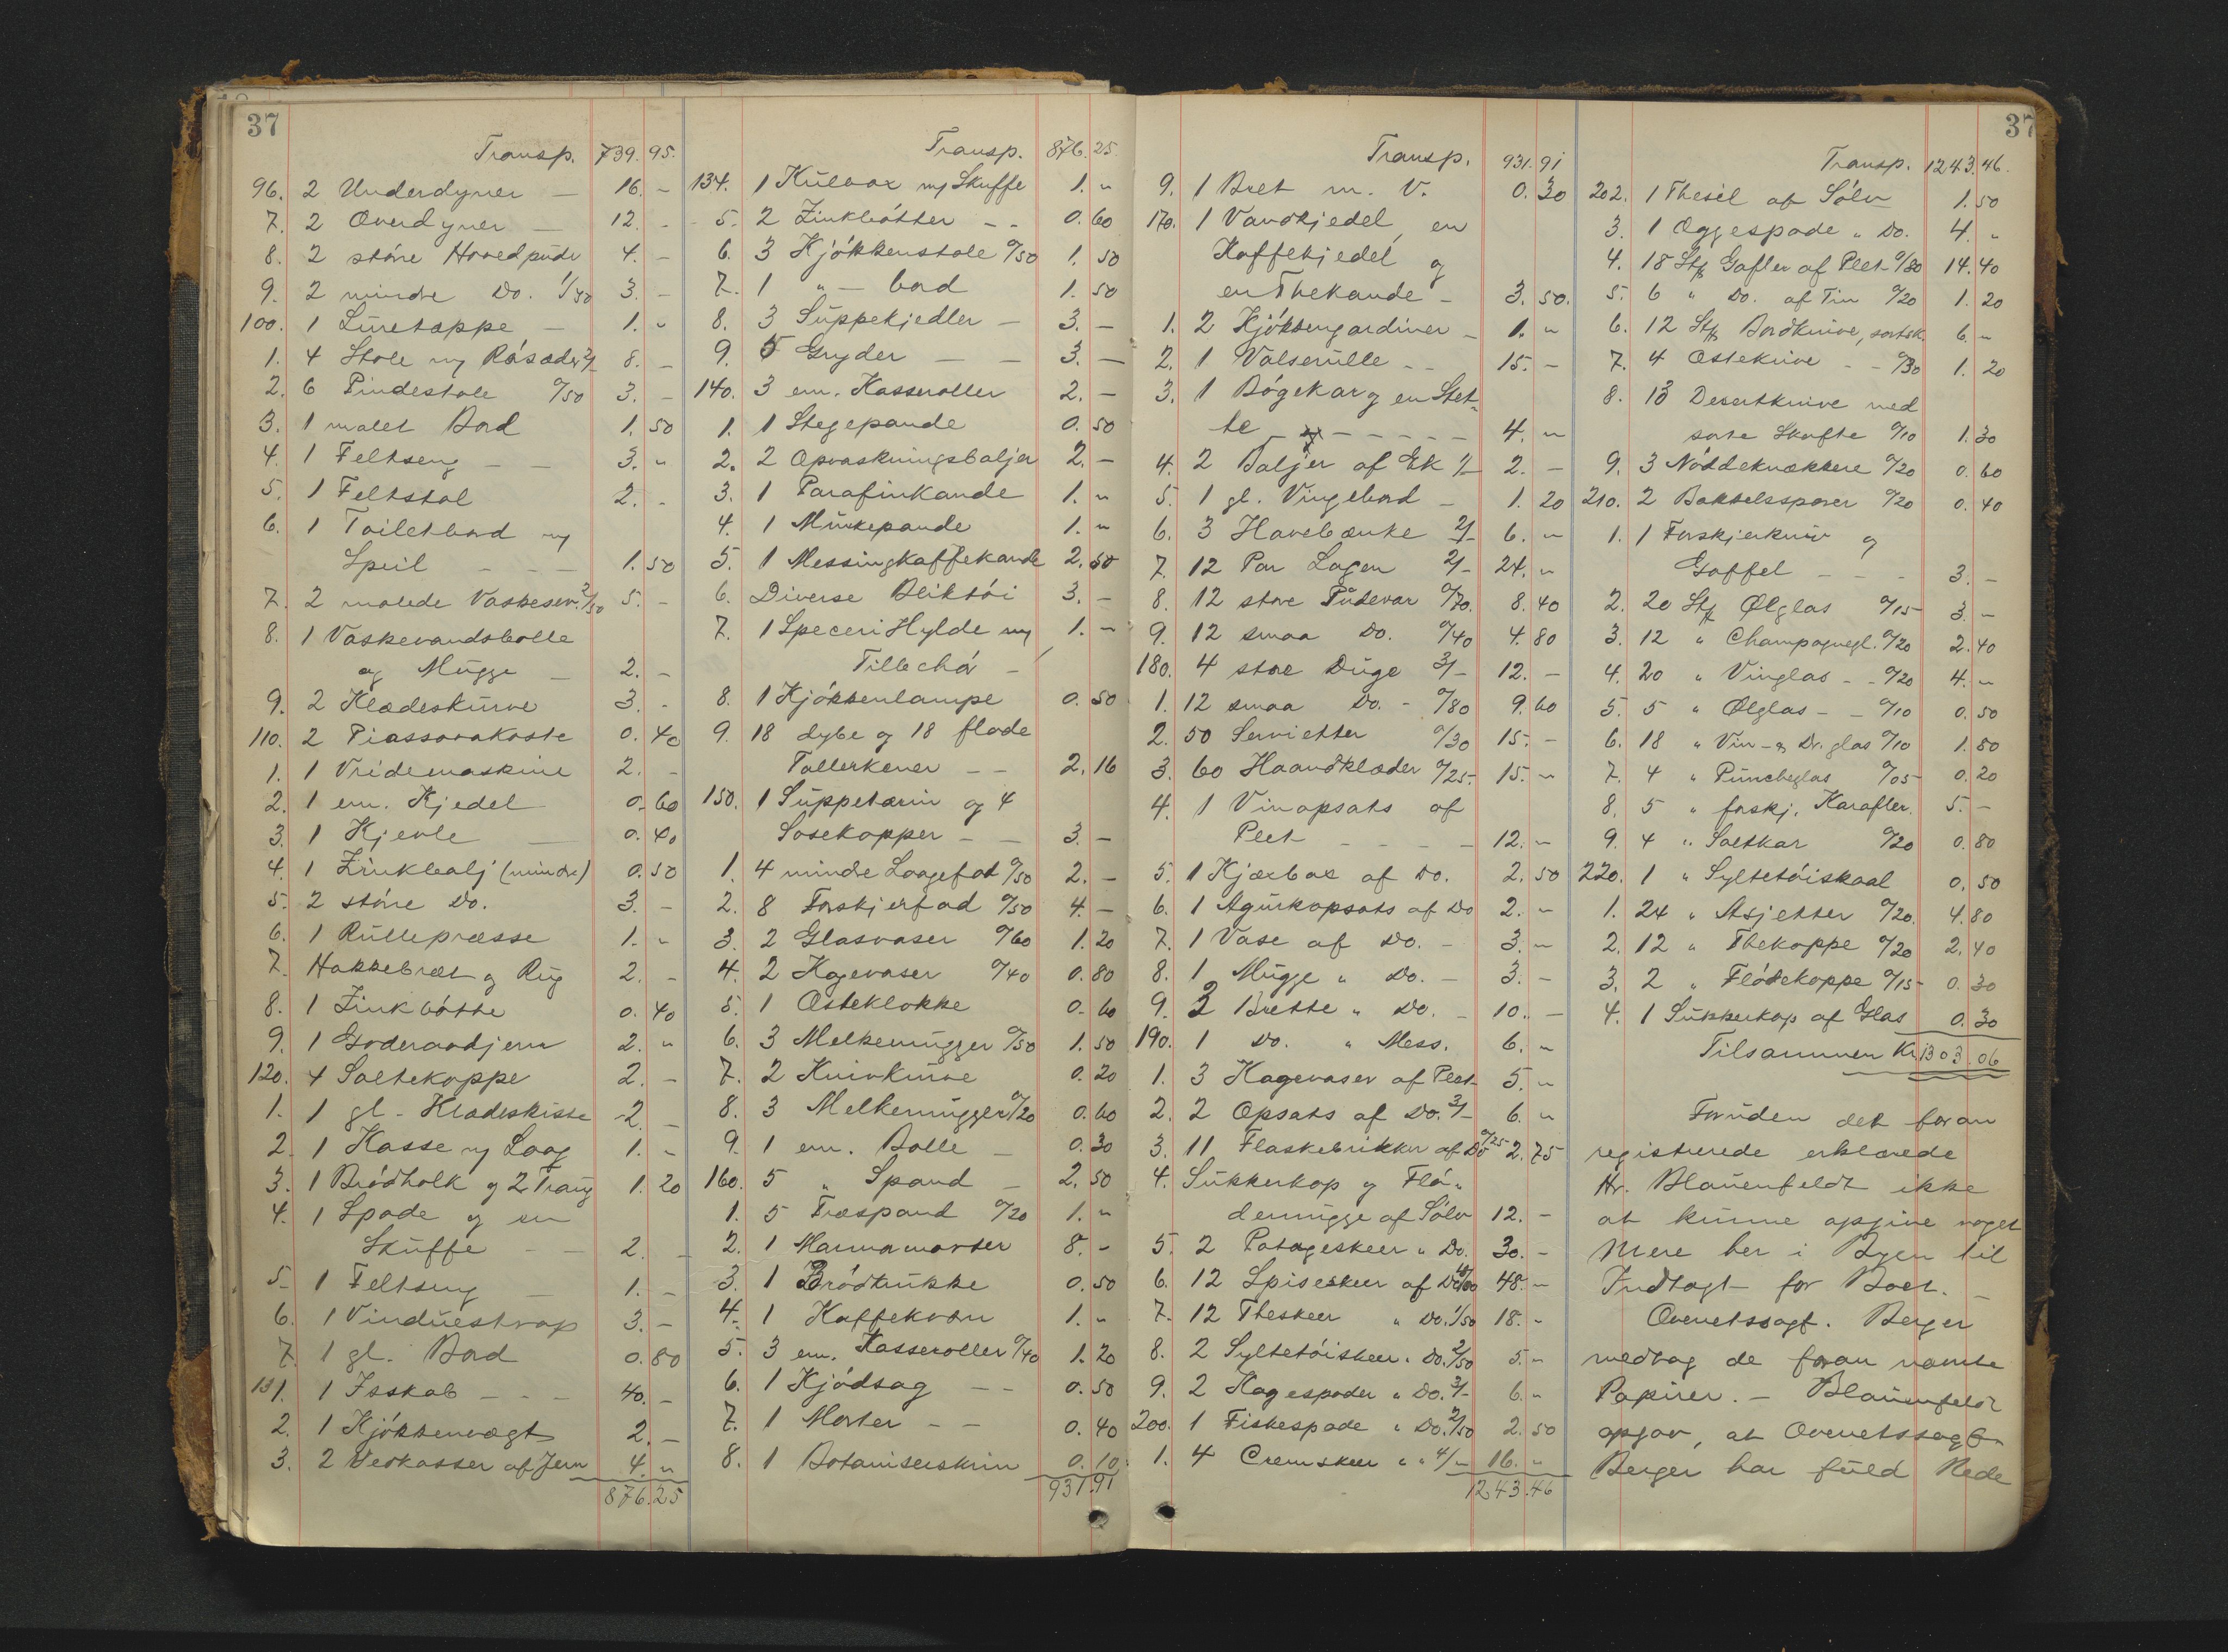 37
Transp. 739.95.
96. 2 Underdyner — 16. -
7. 2 Overdyner — 12. -
8. 2 störe Hovedpuder 4. -
9. 2 mindre Do. 1/50 3. -
100. 1 Luretæppe — 1. "
1. 4 Stole m/ Rösæder 2/- 8. -
2. 6 Pindestole 0/50 3. -
3. 1 malet Bord 1.50
4. 1 Feltseng — — 3. "
5. 1 Feltstol 2. -
6. 1 Toiletbord m/
Speil — — — 1.50
7. 2 malede Vaskeserv. 2/50 5. -
8. 1 Vaskevandsbolle
og Mugge — 2. -
9. 2 Klædeskurve 3. -
110. 2 Piassavakoste 0.40
1. 1 Vridemaskine 2. -
2. 1 em. Kjedel 0.60
3. 1 Kjevle — 0.40
4. 1 Zinkbalj (mindre) 0.50
5. 2 störe Do. 3. -
6. 1 Rullepræsse 1. "
7. Hakkebræt og Rug 2. -
8. 1 Zinkbötte 0.40
9. 1 Goderaadjern 2. "
120. 4 Saltekoppe 2. -
1. 1 gl. Klædeskiste 2. -
2. 1 Kasse m/ Laag 1. "
3. 1 Brödholk og 2 Traug 1.20
4. 1 Spade og en
Skuffe — — 2. -
5. 1 Feltseng — 1. -
6. 1 Vinduestrap 3. -
7. 1 gl. Bord 0.80
131. 1 Isskab — — — 40. -
2. 1 Kjökkenvægt 2. -
3. 2 Vedkasser af Jern 4. "
876.25
Transp. 876.25
134. 1 Kulbox m/ Skuffe 1. "
5. 2 Zinkbötter — — 0.60
6. 3 Kjökkenstole 0/50 1.50
7. 1 " — bord 1.50
8. 3 Suppekjedler — 3. —
9. 5 Gryder — — 3. —
140. 3 em. Kasseroller 2. —
1. 1 Stegepande 0.50
2. 2 Opvaskningsbaljer 2. —
3. 1 Parafinkande 1. "
4. 1 Munkepande 1. "
5. 1 Messingkaffekande 2.50
6. Diverse Bliktöi 3. -
7. 1 Speceri Hylde m/ 1. -
Tillbehör —
8. 1 Kjökkenlampe 0.50
9. 18 dybe og 18 flade
Tallerkener — — 2.16
150. 1 Suppeterrin og 4
Sosekopper — — 3. —
1. 4 mindre Laagefat 0/50 2. —
2. 8 Forskjerfad 0/50 4. —
3. 2 Glasvaser 0/60 1.20
4. 2 Kagevaser 0/40 0.80
5. 1 Osteklokke 0.60
6. 3 Melkemugger 0/50 1.50
7. 2 Knivkurve 0.20
8. 3 Melkemugger 0/20 0.60
9. 1 em. Bolle — 0.30
160. 5 " Spand — 2.50
1. 5 Træspand 0/20 1. "
2. 1 Marmormorter 8. -
3. 1 Brödkrukke 0.50
4. 1 Kaffekværn 1. "
5. 3 em. Kasseroller 0/40 1.20
6. 1 Kjödsag — — 0.50
7. 1 Morter — — 0.40
8. 1 Botaniserskrin 0.10
931.91
37
Transp. 931.91
9. 1 Bret m. V. 0.30
170. 1 Vandkjedel, en
Kaffekjedel og
en Thekande — 3.50.
1. 2 Kjökkengardiner — 1. "
2. 1 Valserulle — — 15. -
3. 1 Bögekar og en Stet-
te — — — — — 4. "
4. 2 Baljer af Ek 1/- 2. —
5. 1 gl. Vingebord — 1.20
6. 3 Havebænke 2/- 6. "
7. 12 Par Lagen 2/- 24. "
8. 12 store Pudevar 0/70. 8.40
9. 12 smaa Do. 0/40 4.80
180. 4 store Duge 3/- 12. -
1. 12 smaa Do. - 0/80 9.60
2. 50 Servietter 0/30 15. -
3. 60 Haandklæder 0/25- 15. "
4. 1 Vinopsats af
Plet — — — — 12. "
5. 1 Kjæxbox af Do. 2.50
6. 1 Agurkopsats af Do 2. "
7. 1 Vase af Do. — 3. "
8. 1 Mugge " Do. — 3. -
9. 3 Brette " Do. — 10. —
190. 1 Do. " Mess. 6. "
1. 3 Kagevaser af Plet 5. "
2. 2 Opsats af Do. 3/- 6. "
3. 11 Flaskebrikker af Do 0/25- 2.75
4. Sukkerkop og Flö-
demugge af Sölv 12. -
5. 2 Potageskeer " Do. 30. -
6. 12 Spiseskeer af Do 4/00 48. "
7. 12 Theskeer " Do. 1/50 18. -
8. 2 Syltetöiskeer " Do. 2/50 5. "
9. 2 Kagespader " Do. 3/- 6. "
200. 1 Fiskespade " Do. 2/50 2.50
1. 4 Cremskeer " " 4/- 16. "
1243.46
Transp. 1243.46.
202. 1 Thesil af Sölv 1.50
3. 1 Æggespade " Do. 4. "
4. 18 Stk Gafler af Plet 0/80 14.40
5. 6 " Do. af Tin 0/20 1.20
6. 12 Stk Bordknive, sortsk. 6. "
7. 4 Osteknive — — 0/30 1.20
8. 13 Desertknive med
sorte Skafte 0/10 1.30
9. 3 Nöddeknækkere 0/20 0.60
210. 2 Bakkelssporer 0/20 0.40
1. 1 Forskjerkniv og
Gaffel — — — 3. -
2. 20 Stk Ølglas 0/15- 3. -
3. 12 " Champagnegl. 0/20 2.40
4. 20 " Vinglas — — 0/20 4. "
5. 5 " Ølglas — — 0/10 0.50
6. 18 " Vin- og Dr. glas 0/10 1.80
7. 4 " Puncheglas 0/05- 0.20
8. 5 " forskj. Karafler. 5. -
9. 4 " Saltkar 0/20 0.80
220. 1 " Syltetöiskaal 0.50
1. 24 " Asjetter 0/20. 4.80
2. 12 " Thekoppe 0/20 2.40
3. 2 " Flödekoppe 0/15- 0.30
4. 1 Sukkerkop af Glas 0.30
Tilsammen Kr 1303.06
Foruden det foran
registrerede erklærede
Hr. Blauenfeldt ikke
at kunne opgive noget
mere her i Byen til
Indtægt for Boet. —
Overretssagf. Berger
medtog de foran nævnte
Papirer. — Blauenfeldt
opgav, at Overretssagf.
Berger har fuld Rede